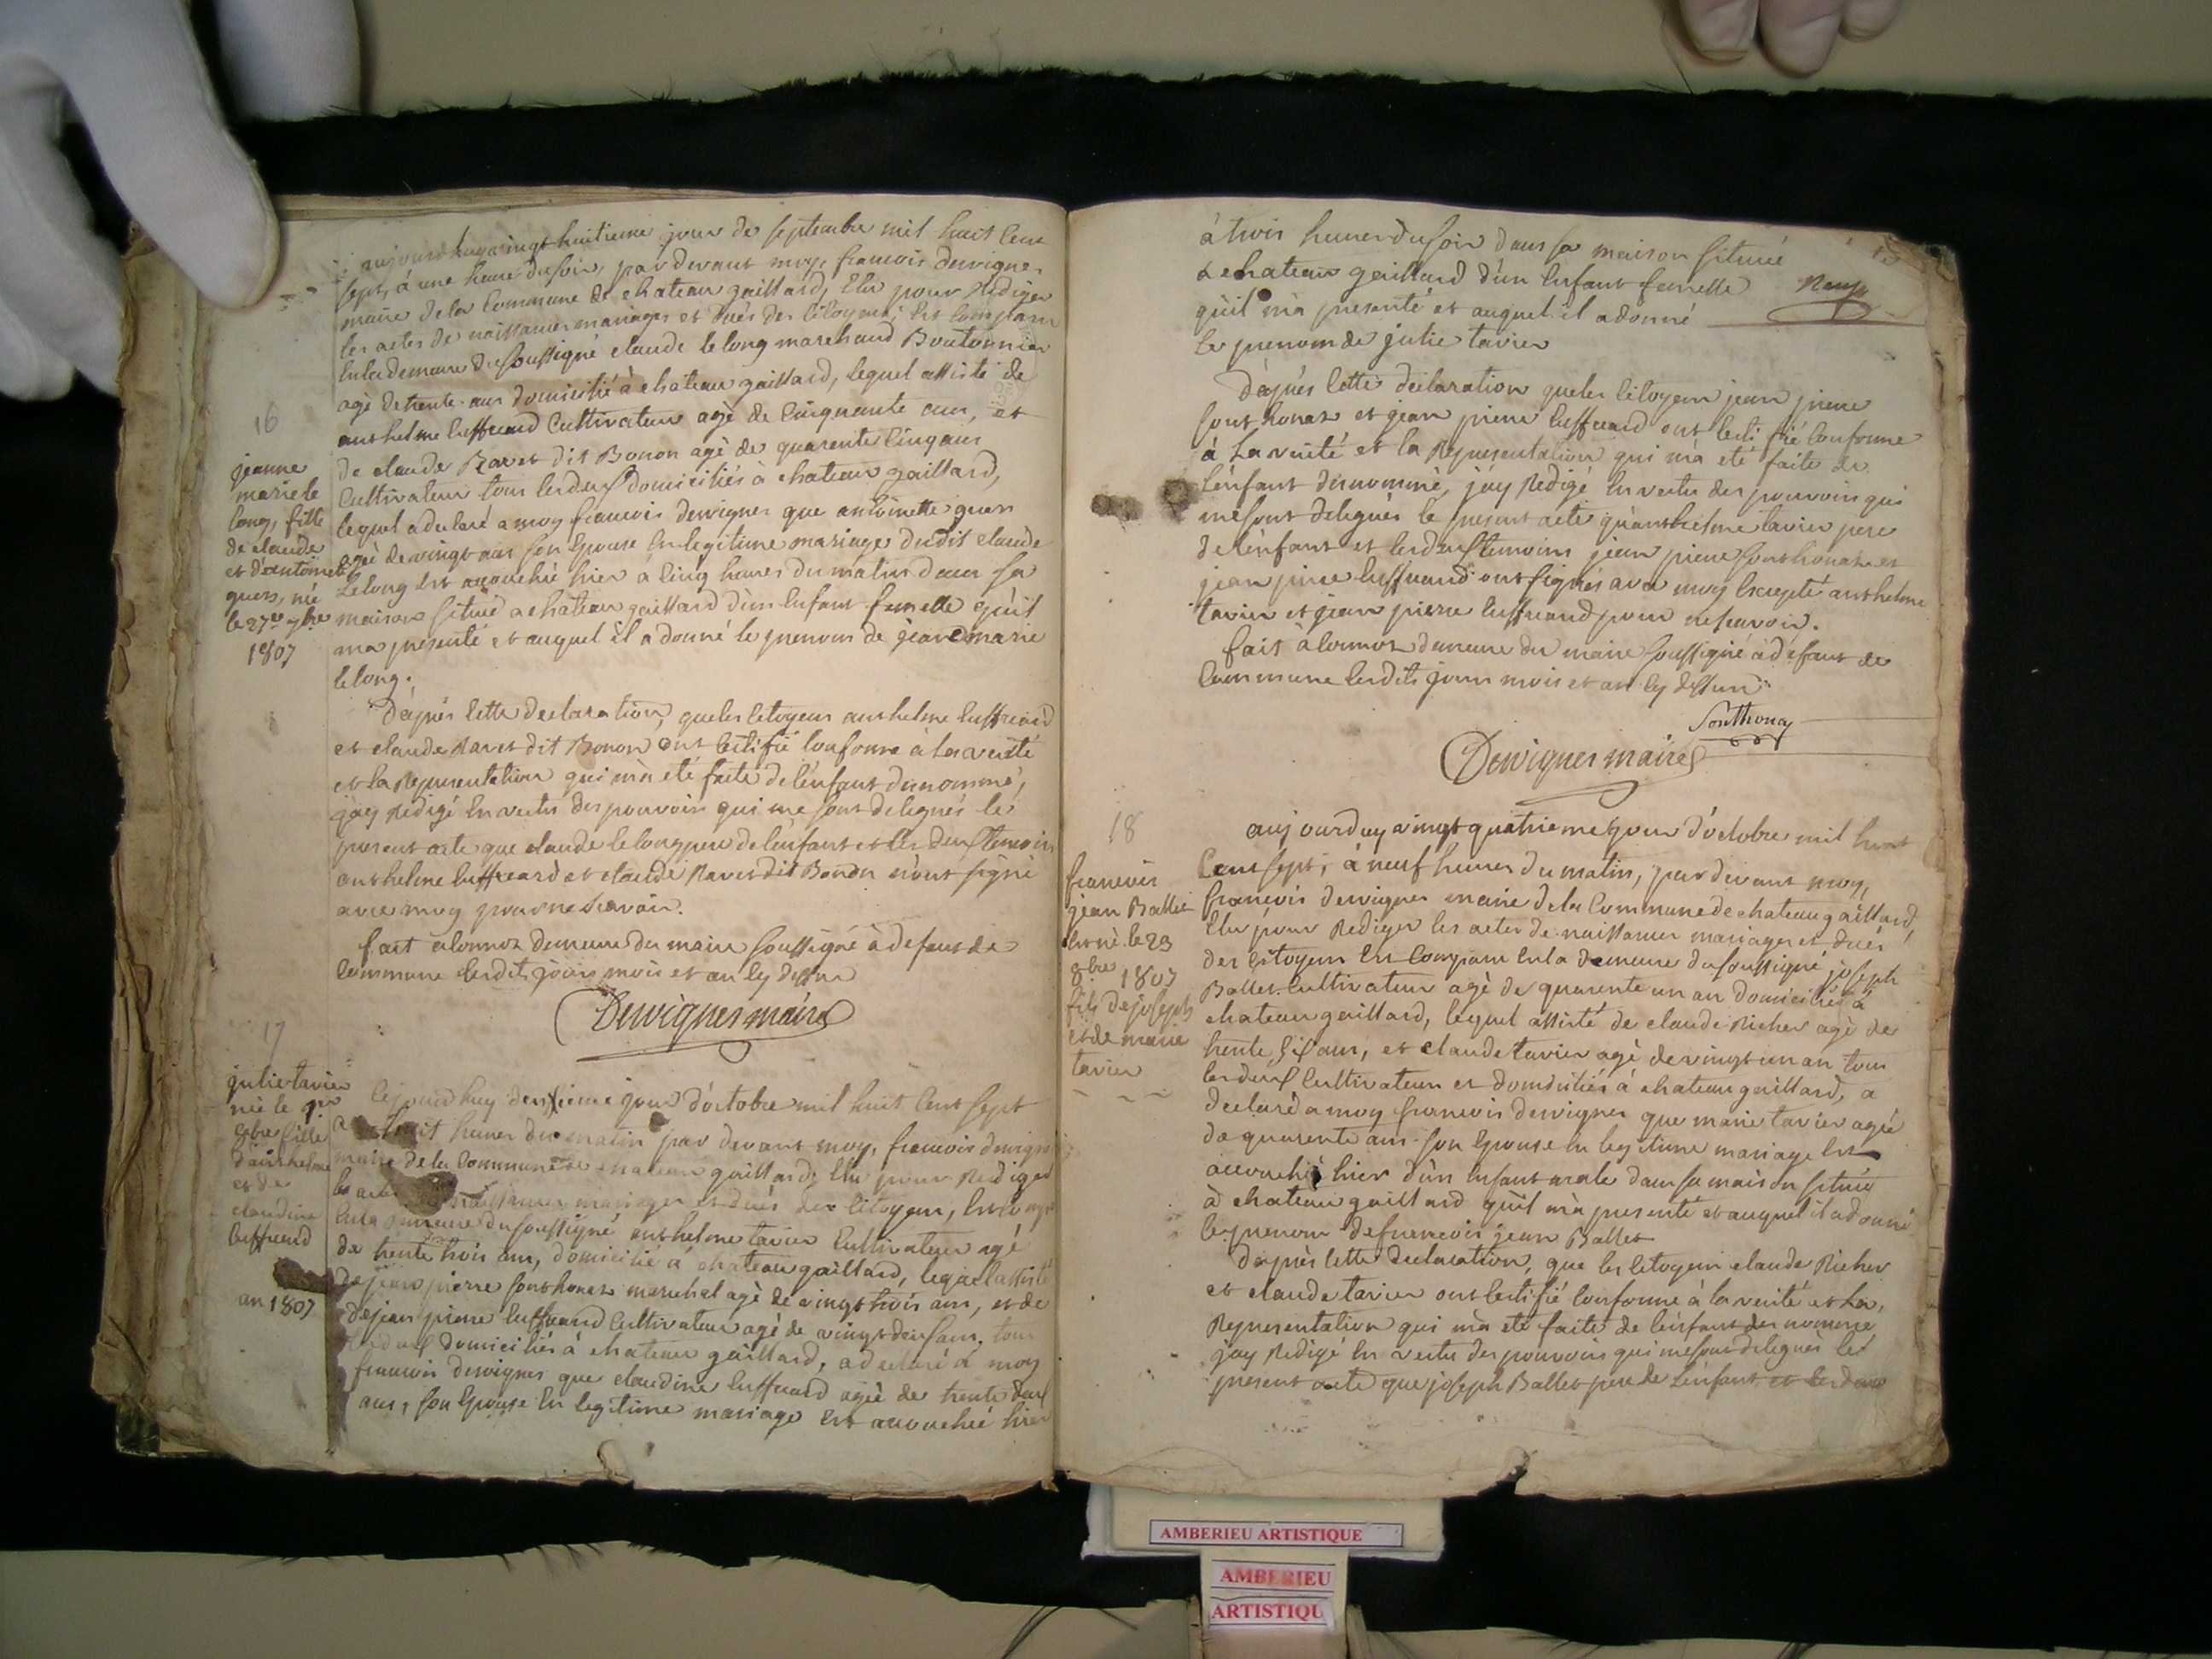 aujourdhuy vingt huitieme jour de septembre mil huit cent
sept, à une heure du soir, par devant moy, francois dervignes
maire de la commune de chateau gaillard, élu pour rediger
les actes de naissances mariages et décés des citoyens, est comparu
en la demeure du soussigné claude le long marchand Boutonnier
agé de trente ans domicilié à chateau gaillard, lequel assisté de
anthelme Cuffreard Cultivateur agé de cinquante ans, et
de claude Ravet dit Bonon agé de quarente cinq ans
Cultivateur tous les deux domiciliés à chateau gaillard,
lequel a declaré a moy francois dervignes que antoinette quers
agé de vingt ans son epouse en legitime mariage dudit claude
Le long est accouchée hier à cinq heures du matin dans sa
maison située a chateau gaillard d'un enfant femelle qu'il
ma presenté et auquel il a donné le prenom de jeanne marie
le long.
D'aprés cette declaration, que les citoyens anthelme Cuffreard
et claude Ravet dit Bonon ont certifié conforme à la verité
et la Representation qui m'a eté faite de l'enfant denommé,
j'ay Redigé en vertu des pouvoirs qui me sont delegués le
present acte que claude le long pere de l'enfant et les deux temoins
anthelme Cuffreard et claude Ravet dit Bonon n'ont signé
avec moy pour ne scavoir.
fait à lonnoz demeure du maire soussigné à defaut de
commune lesdits jours mois et an cy dessus
Dervignes maire
16
jeanne
marie le
long, fille
de claude
et d'antoinette
quers, née
le 27e 7bre
1807
17
julie tavier
née le 1er
8bre fille
d'anthelme
et de
claudine
Cuffreard
an 1807
Cejourd huy deuxieme jour d'octobre mil huit cent sept
a huit heures du matin par devant moy, francois dervignes
maire de la Commune de chateau gaillard, élu pour Rediger
les actes naissances mariages et décés des citoyens, est comparu
en la demeure du soussigné anthelme tavier Cultivateur agé
de trente trois ans, domicilié à chateau gaillard, lequel assisté
de jean pierre sonthonaz marechal agé de vingt trois ans, et de
de jean pierre Cuffreard Cultivateur agé de vingt deux ans, tous
les deux domiciliés à chateau gaillard, a declaré à moy
francois dervignes que claudine Cuffreard agée de trente deux
ans, son epouse en legitime mariage est accouchée hier
à trois heures du soir dans sa maison située
a chateau gaillard d'un enfant femelle
qu'il m'a presenté et auquel il a donné
le prenom de julie tavier
D'aprés cette declaration que les citoyens jean pierre
sonthonaz et jean pierre Cuffreard ont certifié conforme
à la verité et la Representation qui m'a eté faite de
l'enfant denommé, j'ay Redigé en vertu des pouvoirs qui
me sont delegués le present acte qu'anthelme tavier pere
de l'enfant et les deux temoins jean pierre sonthonaz et
jean pierre Cuffreard ont signés avec moy Excepté anthelme
tavier et jean pierre Cuffreard pour ne scavoir.
fait à lonnoz demeure du maire soussigné à defaut de
Commune lesdits jours mois et an cy dessus
Sonthonaz
Dervignes maire
18
francois
jean Ballet
est né le 23
8bre 1807
fils de joseph
et de marie
tavier
aujourduy vingt quatrieme jour d'octobre mil huit
Cent sept, à neuf heures du matin, par devant moy,
francois dervignes maire de la Commune de chateau gaillard,
élu pour Rediger les actes de naissances mariages et décés
des Citoyens est Comparu en la demeure du soussigné joseph
Ballet Cultivateur agé de quarente un an domicilié à
chateau gaillard, lequel assisté de claude Richer agé de
trente six ans, et claude tavier agé de vingt un an tous
les deux Cultivateurs et domiciliés à chateau gaillard, a
declaré a moy francois dervignes que marie tavier agée
de quarente ans son epouse en legitime mariage est
accouchée hier d'un enfant male dans sa maison située
à chateau gaillard qu'il m'a presenté et auquel il a donné
le prenom de francois jean Ballet
D'aprés cette declaration, que les citoyens claude Richer
et claude tavier ont certifié conforme à la verité et la
Representation qui m'a eté faite de l'enfant denommé
j'ay Redigé en vertu des pouvoirs qui me sont delegués le
present acte que joseph Ballet pere de l'enfant et les deux
AMBERIEU ARTISTIQUE
AMBERIEU
ARTISTIQU